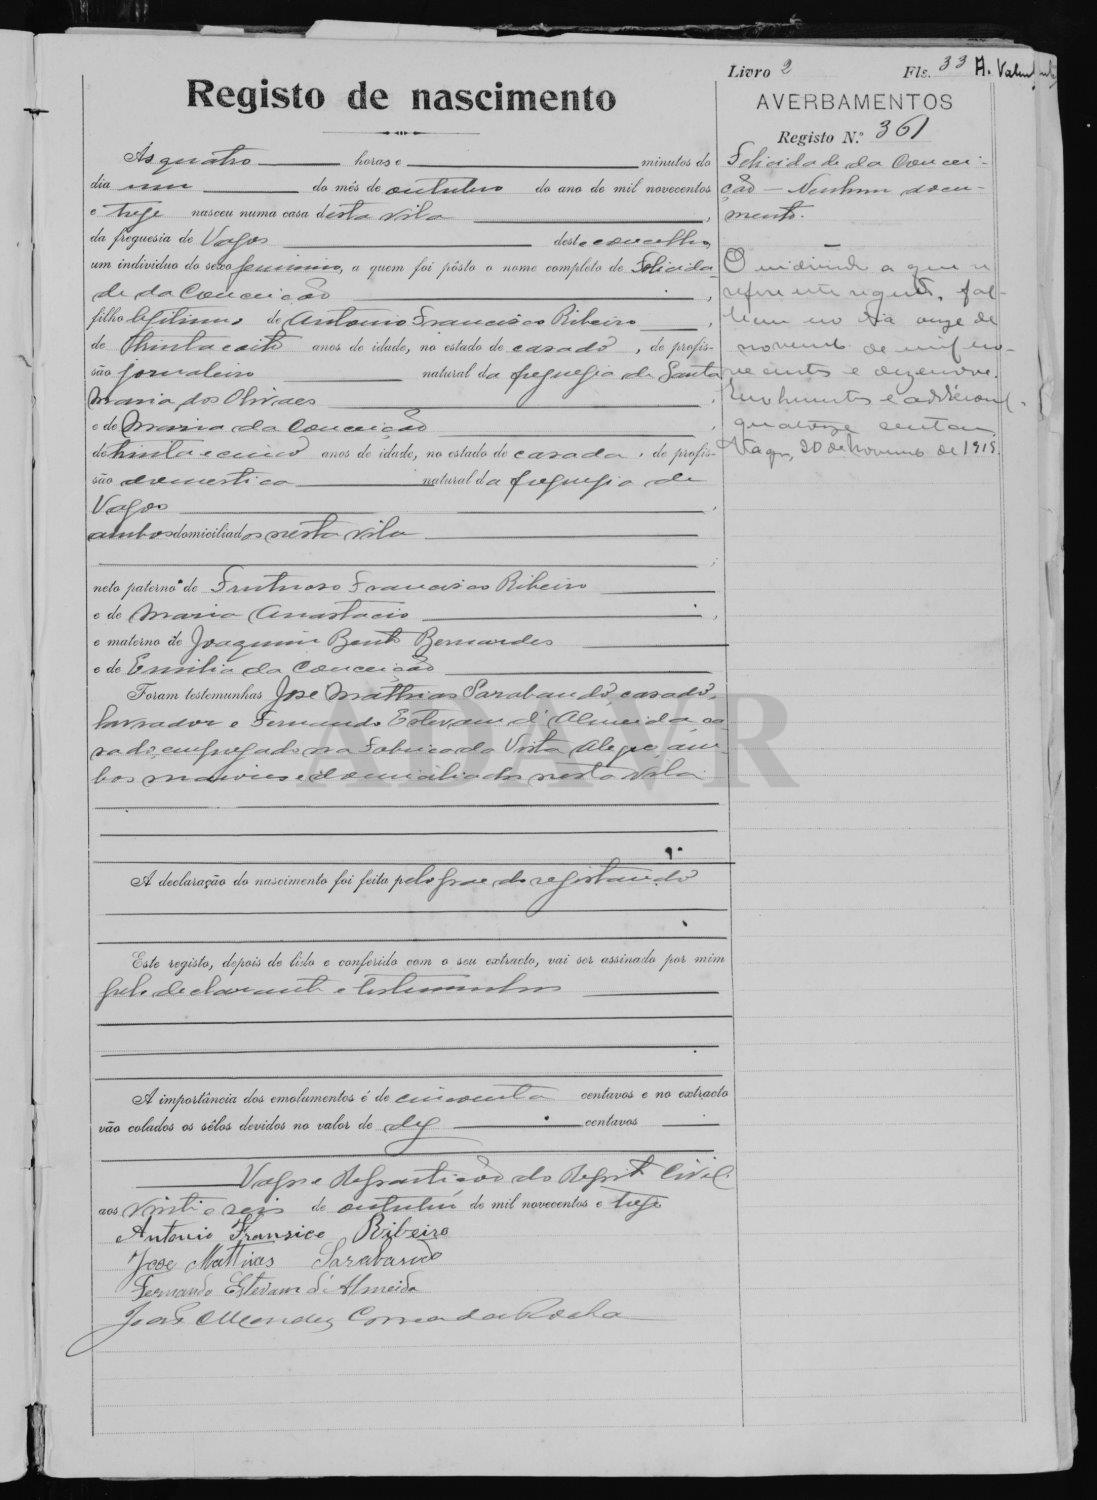 Livro 2 Fls. 33
Registo de nascimento
AVERBAMENTOS
Registo N.º 361
Ás quatro horas e minutos do
dia um do mês de outubro do ano de mil novecentos
e treze nasceu numa casa desta vila,
da freguesia de Vagos deste concelho,
um individuo do sexo feminino, a quem foi pôsto o nome completo de Felicida-
de da Conceição,
filho legitimo de Antonio Francisco Ribeiro,
de trinta e oito anos de idade, no estado de casado, de profis-
são jornaleiro natural da freguesia de Santa
Maria dos Olivaes,
e de Maria da Conceição,
de trinta e cinco anos de idade, no estado de casada, de profis-
são domestica natural da freguesia de
Vagos,
ambos domiciliados nesta vila
neto paterno de Frutuoso Francisco Ribeiro
e de Maria Anastacio,
e materno de Joaquim Bento Bernardes
e de Emilia da Conceição
Foram testemunhas José Mathias Sarabando, casado,
lavrador e Fernando Estevam d'Almeida, ca-
sado, empregado na Fabrica da Vista Alegre, am-
bos maiores e domiciliados nesta vila.
A declaração do nascimento foi feita pelo pae do registando
Este registo, depois de lido e conferido com o seu extracto, vai ser assinado por mim
pelo declarante e testemunhas
A importância dos emolumentos é de cincoenta centavos e no extracto
vão colados os sêlos devidos no valor de dez centavos
Vagos e Repartição do Registo Civil
aos vinte e seis de outubro de mil novecentos e treze
Antonio Fransico Ribeiro
Jose Mattias Sarabando
Fernando Estevam d'Almeida
João Mendes Correia da Rocha
Felicidade da Concei-
ção — Nenhum docu-
mento.
O individuo a que se
refere este registo, fal-
leceu no dia onze de
novembro de mil no-
vecentos e dezenove.
Emolumentos e addicional
quatorze centavos
Vagos, 20 de Novembro de 1919.
ADAVR